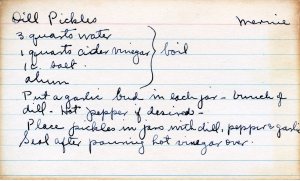 Dill Pickles Mernie
3 quarts water
1 quarts cider vinegar } boil
1 c. salt
alum
Put a garlic bud in each jar - bunch of
dill - Hot pepper if desired -
Place pickles in jars with dill, pepper & garlic
Seal after pouring hot vinegar over.